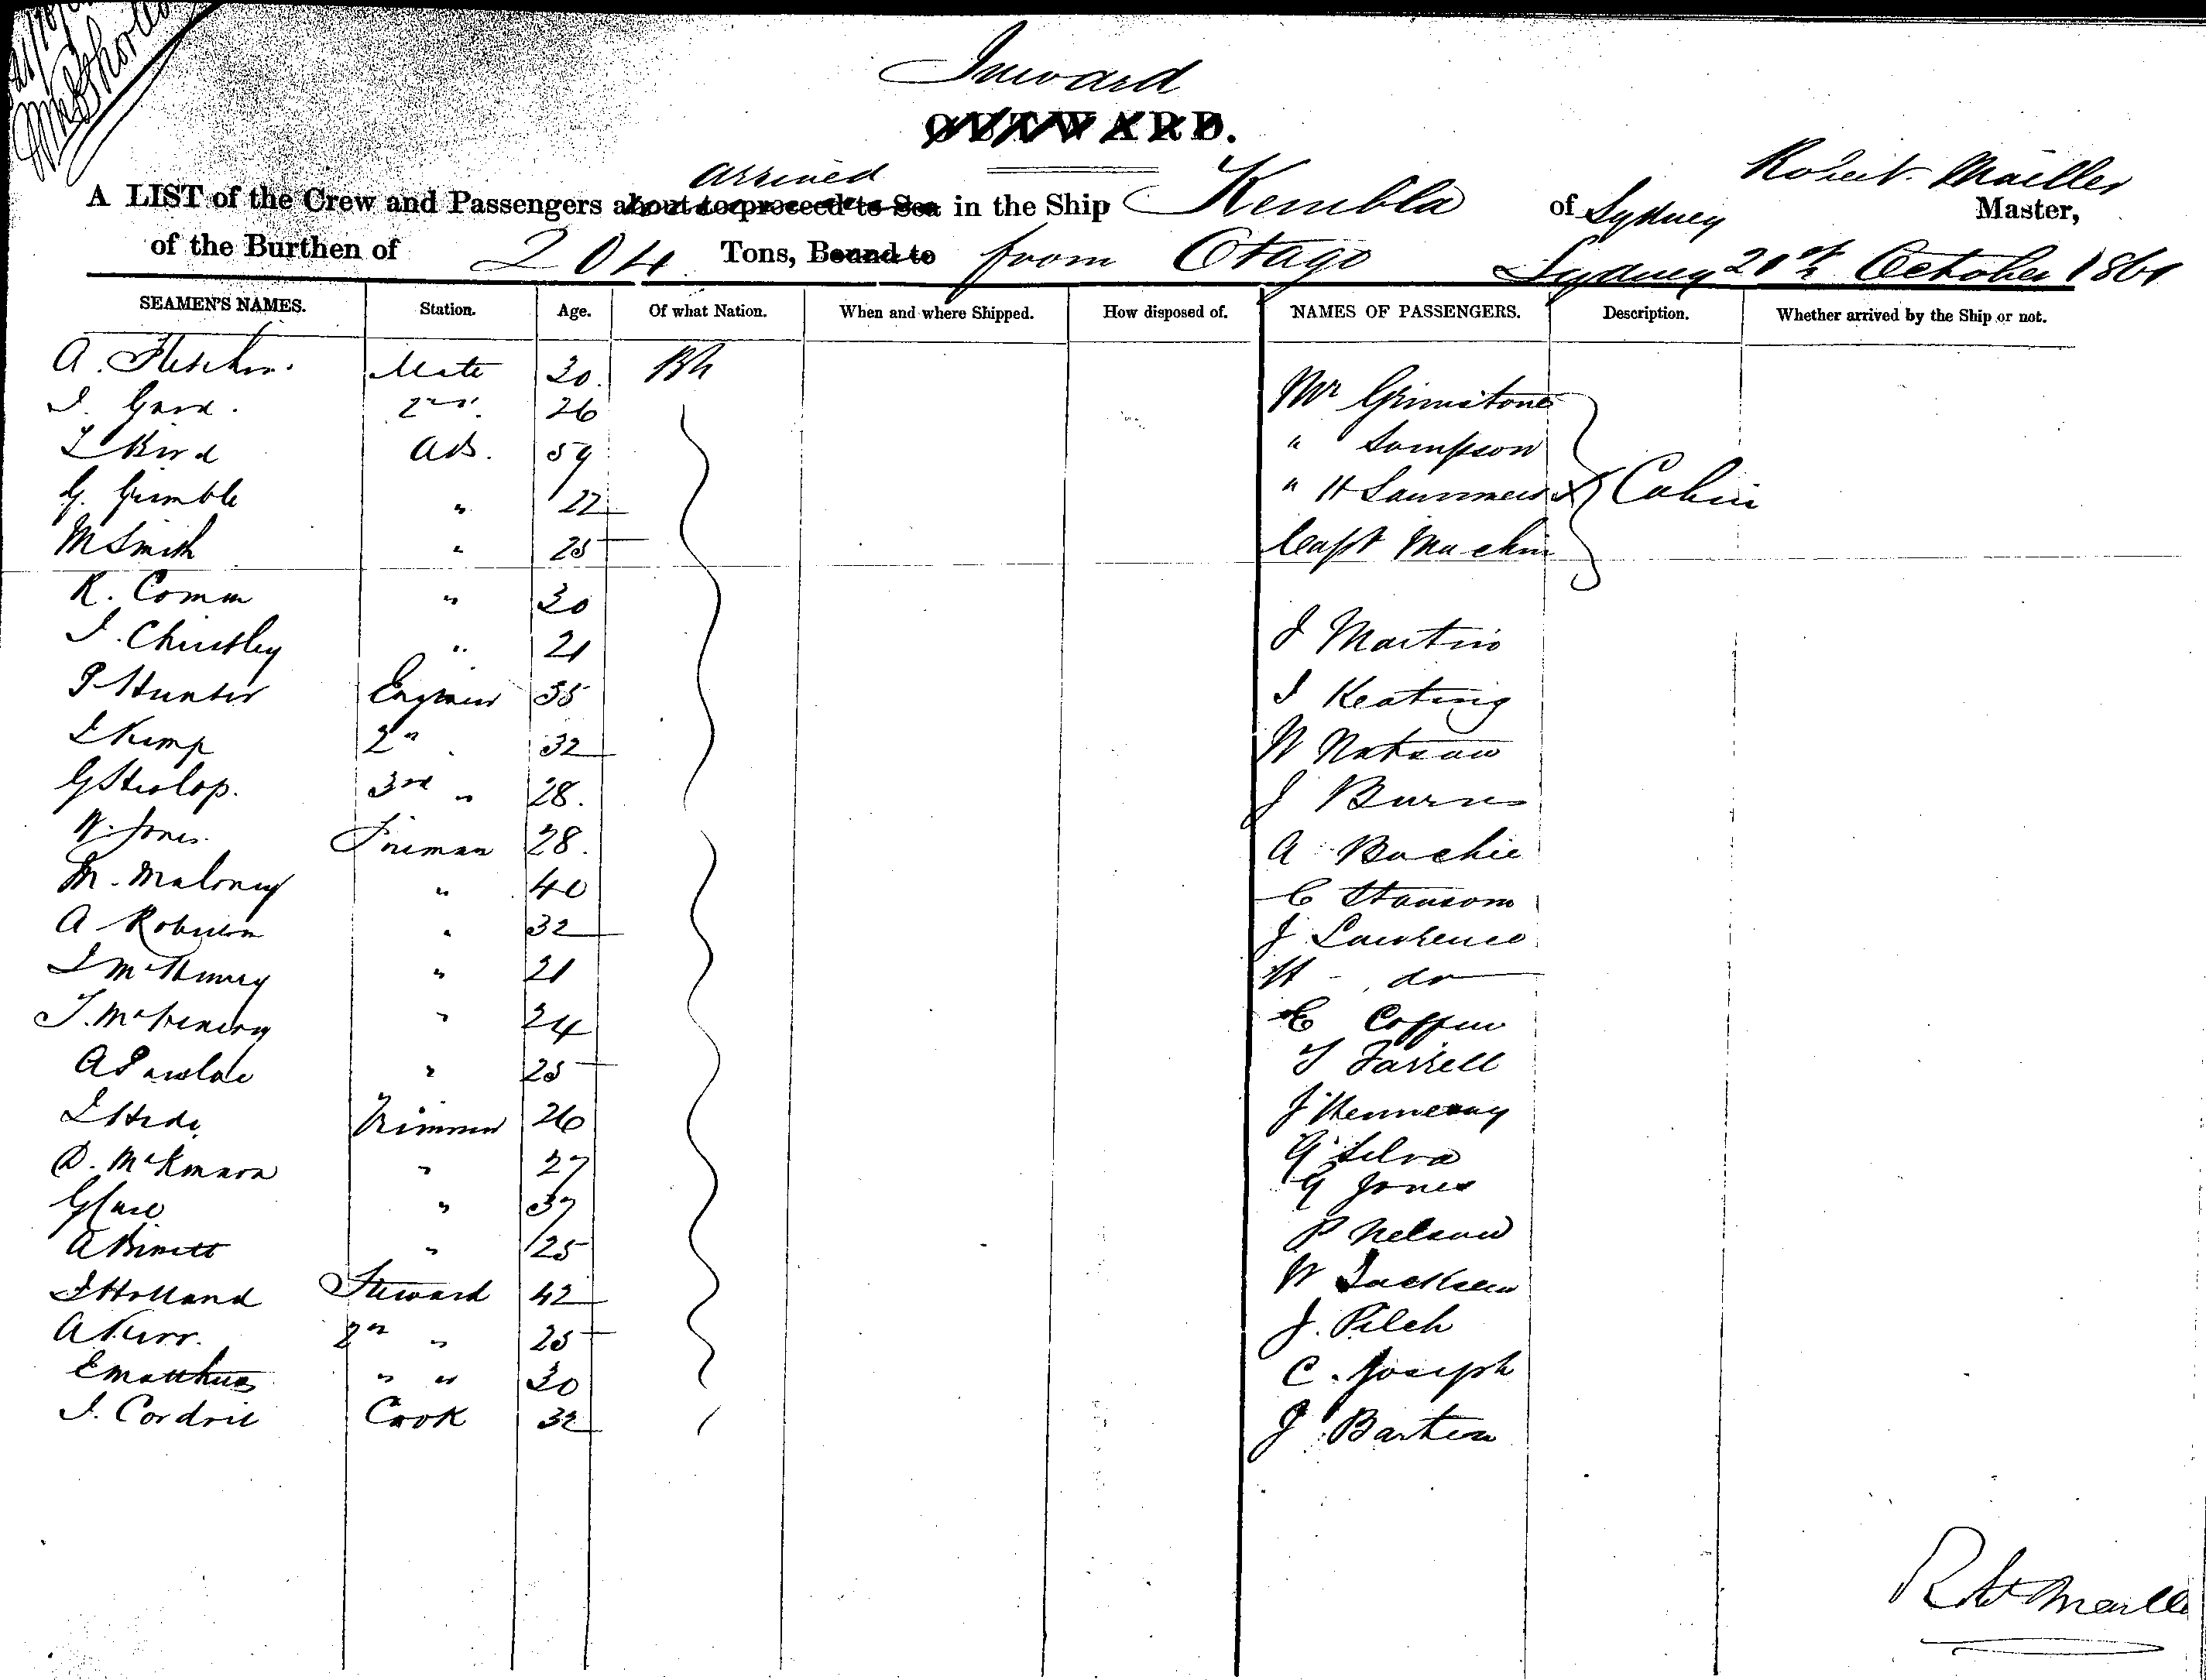 Inward
OUTWARD.
arrived
Robert Mailler
A LIST of the Crew and Passengers about to proceed to Sea in the Ship Kembla of Sydney Master,
of the Burthen of 204 Tons, Bound to from Otago Sydney 21st October 1861
SEAMEN'S NAMES. Station. Age. Of what Nation. When and where Shipped. How disposed of. NAMES OF PASSENGERS. Description. Whether arrived by the Ship or not.
A. Fletcher. Mate 30. Bh
Mr Grimstone
26
" Sampson
L Bird AB. 59
G. Grimble " 22 " H Saunmers Cabin
M Smith " 25 Capt Machin
R. Comm " 30
J. Christley " 21 J Martin
P Hunter Engineer 35 J Keating
J Kemp 2n 32 W Natsau
G Heslop. 3rd " 28. J Burns
W. Jones. Fireman 28. A Bachie
M. Maloney " 40 C Stansom
A Robinson " 32 J Lawrence
" 21 H - do
" 24 E Coffin
A " 25 T Farrell
Trimmer 26 J Hennessy
" 27 G Silva
G Case " 37 G Jones
A Binett " 25 P Nelson
J Holland Steward 42 W Jackson
A Kerr. 2n " 25 J. Pilch
E Matthews " " 30 C. Joseph
J. Cordril Cook 32 J Barten
Robt Maille